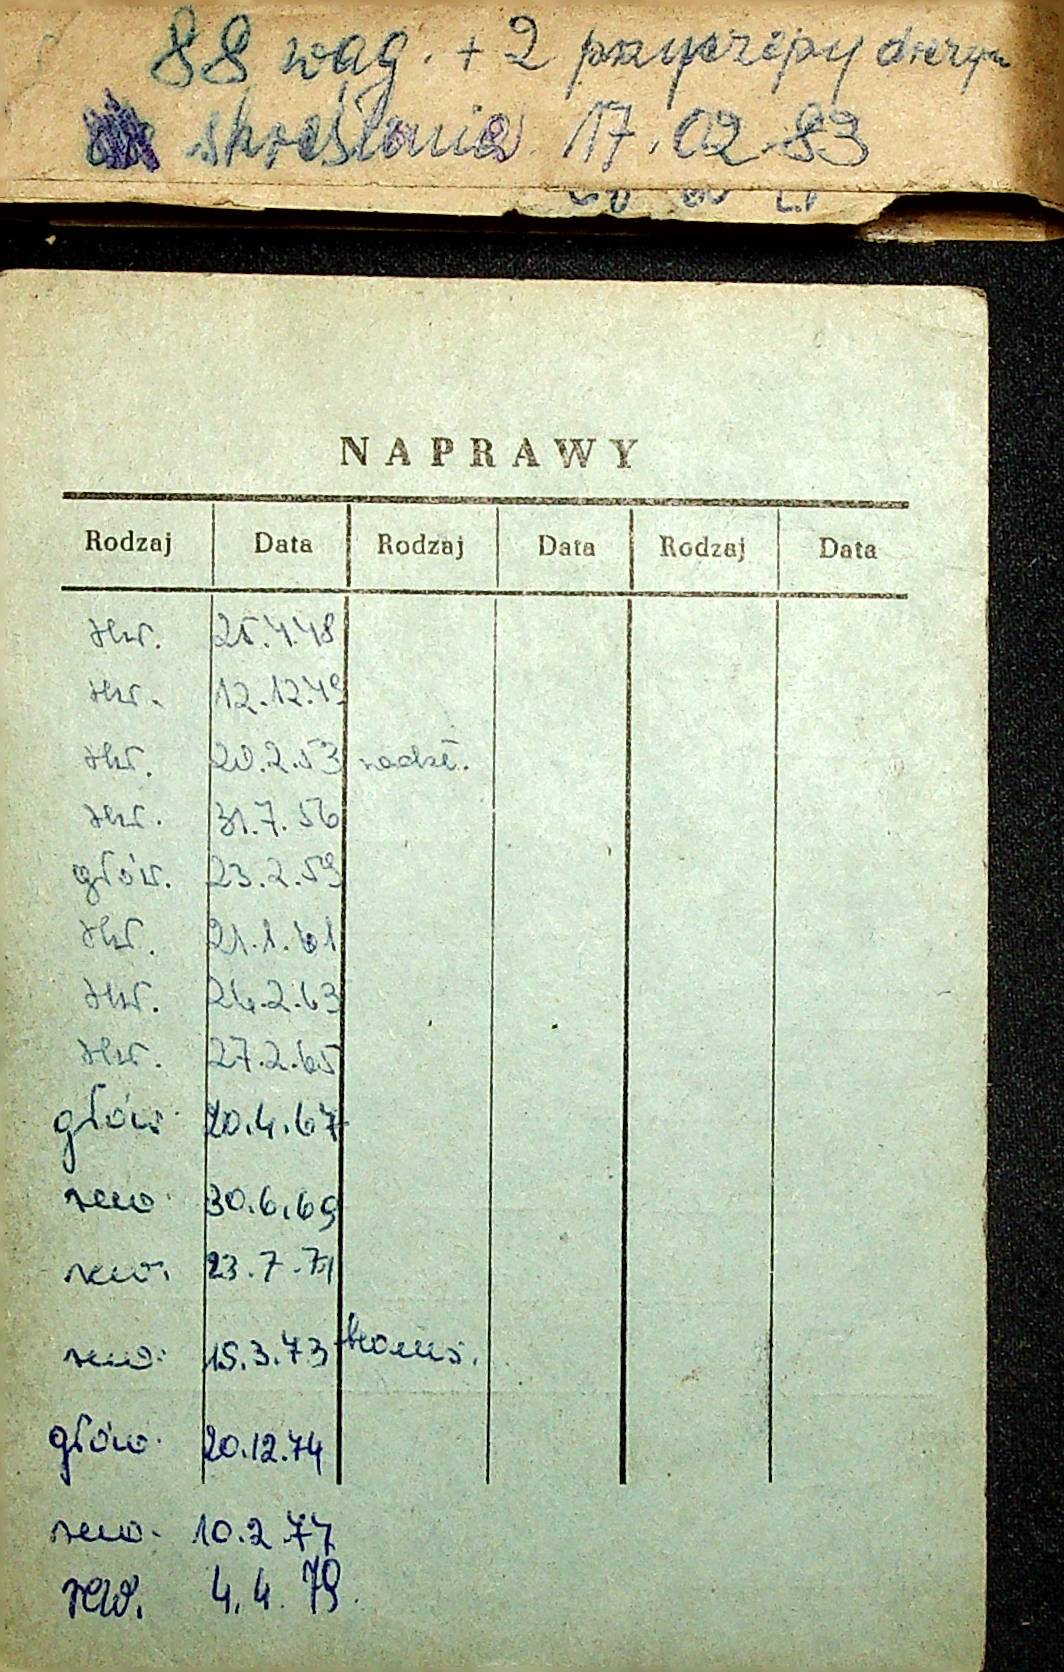 88 wag. + 2 przyczepy
skreślenie 17.02.83
NAPRAWY
Rodzaj Data Rodzaj Data Rodzaj Data
rew. 25.4.48
rew. 12.12.49
rew. 20.2.53
rew. 31.7.56
głów. 23.2.59
rew. 21.1.61
rew. 26.2.63
rew. 27.2.65
głów. 20.4.67
rew. 30.6.69
rew. 23.7.71
rew. 15.3.73
głów. 20.12.74
rew. 10.2.77
rew. 4.4.79.